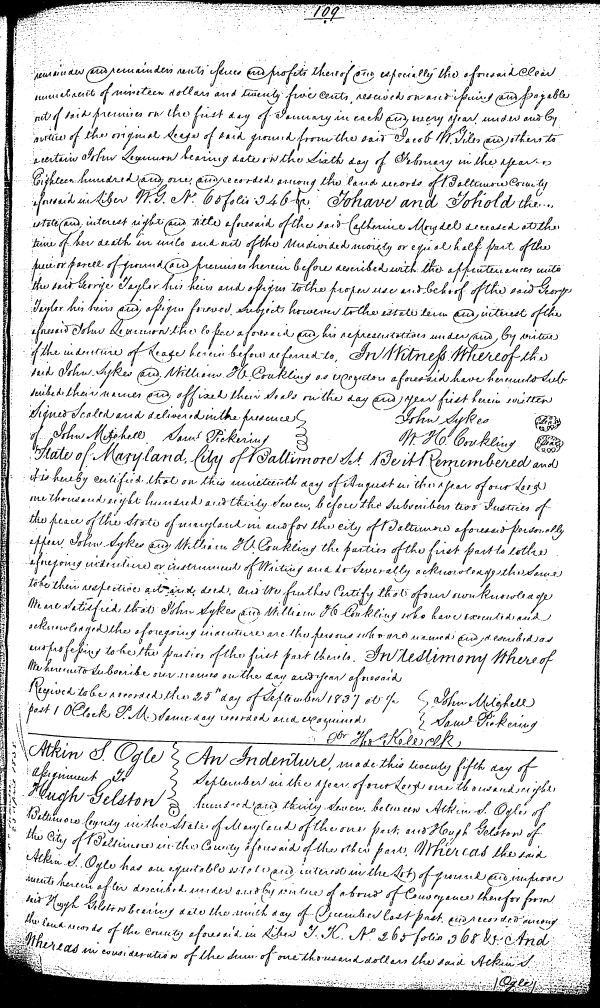 109
remainder and remainders rents issues and profits thereof and especially the aforesaid clear
annual rent of nineteen dollars and twenty five cents, reserved on and issuing and payable
out of said premises on the first day of January in each and every year under and by
virtue of the original Lease of said ground from the said Jacob W. Giles and others to
a certain John Leammon bearing date on the sixth day of February in the year
Eighteen hundred and one, and recorded among the land records of Baltimore County
aforesaid in Liber W. G. No. 65 folio 346 &c. To have and To hold the
estate and interest right and title aforesaid of the said Catherine Moydel deceased at the
time of her death in unto and out of the Undivided moiety or equal half part of the
piece or parcel of ground and premises herein before described with the appurtenances unto
the said George Taylor his heirs and assigns to the proper use and behoof of the said George
Taylor his heirs and assigns forever. Subject however to the estate term and interest of the
aforesaid John Leammon the lessee aforesaid and his representatives under and by virtue
of the indenture of Lease herein before referred to. In Witness Whereof the
said John Sykes and William H. Conkling as executors aforesaid have hereunto sub
scribed their names and affixed their seals on the day and year first herein written
Signed Sealed and delivered in the presence John Sykes Seal
of John Mitchell Saml Pickering W. H. Conkling Seal
State of Maryland, City of Baltimore Sct. Be it Remembered and
it is hereby certified that on this nineteenth day of August in the year of our Lord
one thousand eight hundred and thirty seven, before the subscribers two Justices of
the peace of the State of maryland in and for the city of Baltimore aforesaid personally
appear John Sykes and William H. Conkling the parties of the first part to the
aforegoing indenture or instrument of Writing and do severally acknowledge the same
to be their respective act and deed. And We further Certify that of our own knowledge
We are satisfied that John Sykes and William H. Conkling who have executed and
acknowledged the aforegoing indenture are the persons who are named and described as
and professing to be the parties of the first part thereto. In testimony Whereof
We hereunto subscribe our names on the day and year aforesaid
Received to be recorded the 25th day of September 1837 at ½ John Mitchell
past 1 O Clock P.M. same day recorded and examined Saml Pickering
pr Thos Kell Clk
Atkin S. Ogle An Indenture, made this twenty fifth day of
assignment To September in the year of our Lord one thousand eight
Hugh Gelston hundred and thirty seven, between Atkin S. Ogle of
Baltimore County in the State of Maryland of the one part, and Hugh Gelston of
the City of Baltimore in the County aforesaid of the other part. Whereas the said
Atkin S. Ogle has an equitable estate and interest in the Lot of ground and improve
ments herein after described under and by virtue of a bond of Conveyance therefor from
said Hugh Gelston bearing date the ninth day of December last past, and recorded among
the land records of the county aforesaid in Liber T. K. No. 265 folio 368 &c. And
Whereas in consideration of the sum of one thousand dollars the said Atkin S
Ogle